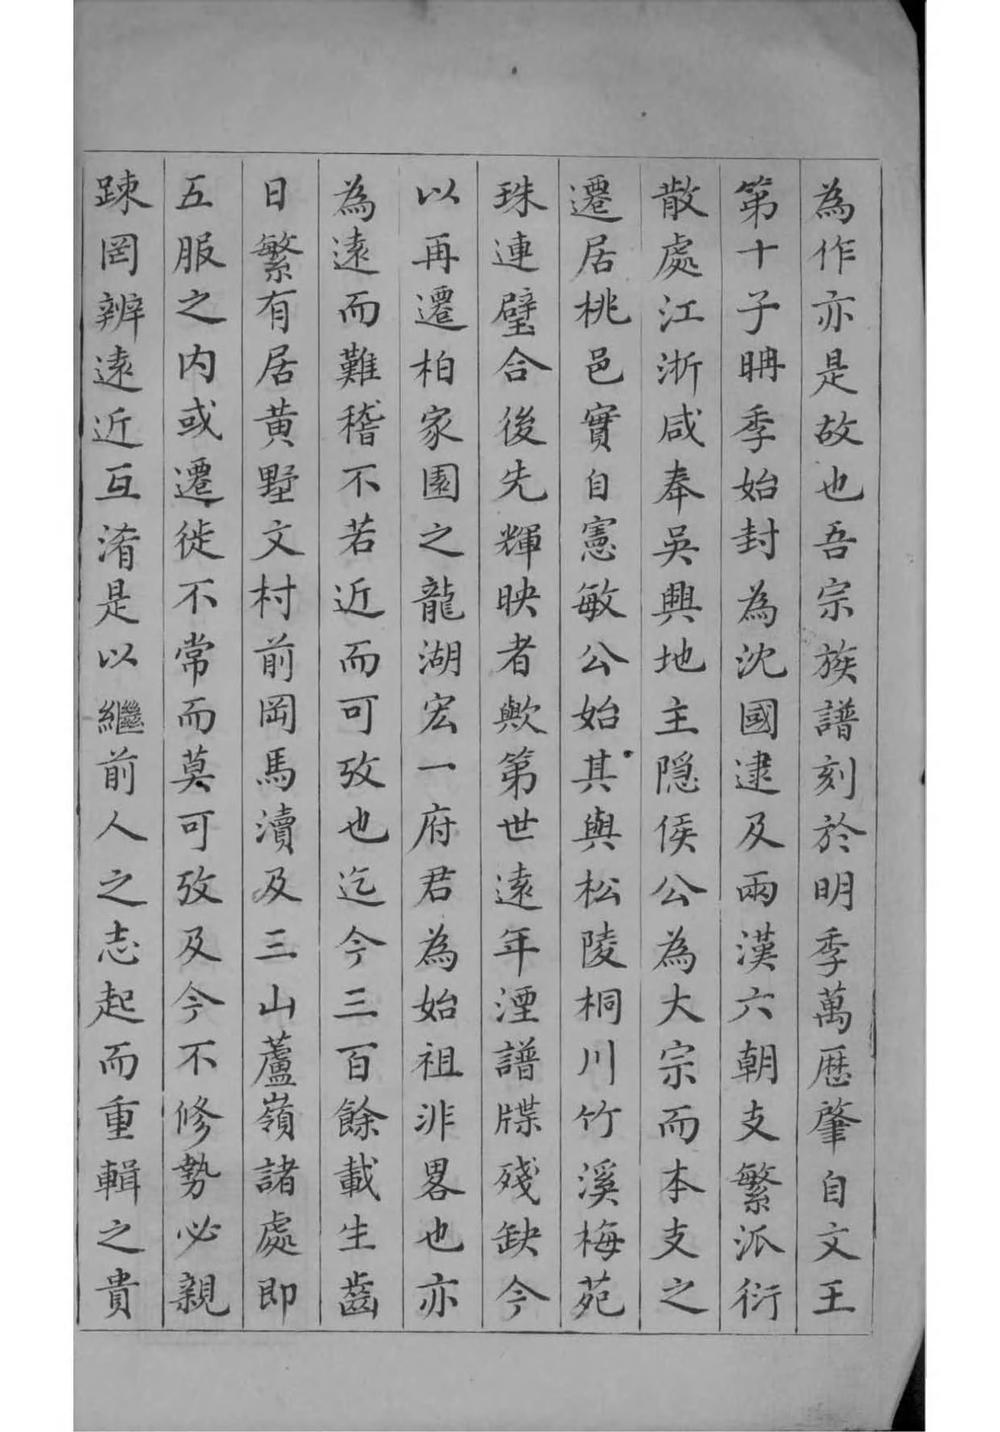 為作亦是故也吾宗族譜刻於明季萬厯肇自文王
第十子聃季始封為沈國逮及兩漢六朝支繁派衍
散處江浙咸奉吳興地主隐侯公為大宗而本支之
遷居桃邑實自憲敏公始其與松陵桐川竹溪梅苑
珠連璧合後先輝映者歟第世遠年湮譜牒殘缺今
以再遷柏家園之龍湖宏一府君為始祖非畧也亦
為遠而難稽不若近而可攷也迄今三百餘載生齒
日繁有居黃墅文村前岡馬瀆及三山蘆嶺諸處即
五服之内或遷徙不常而莫可攷及今不修勢必親
踈罔辨遠近互淆是以繼前人之志起而重輯之貴